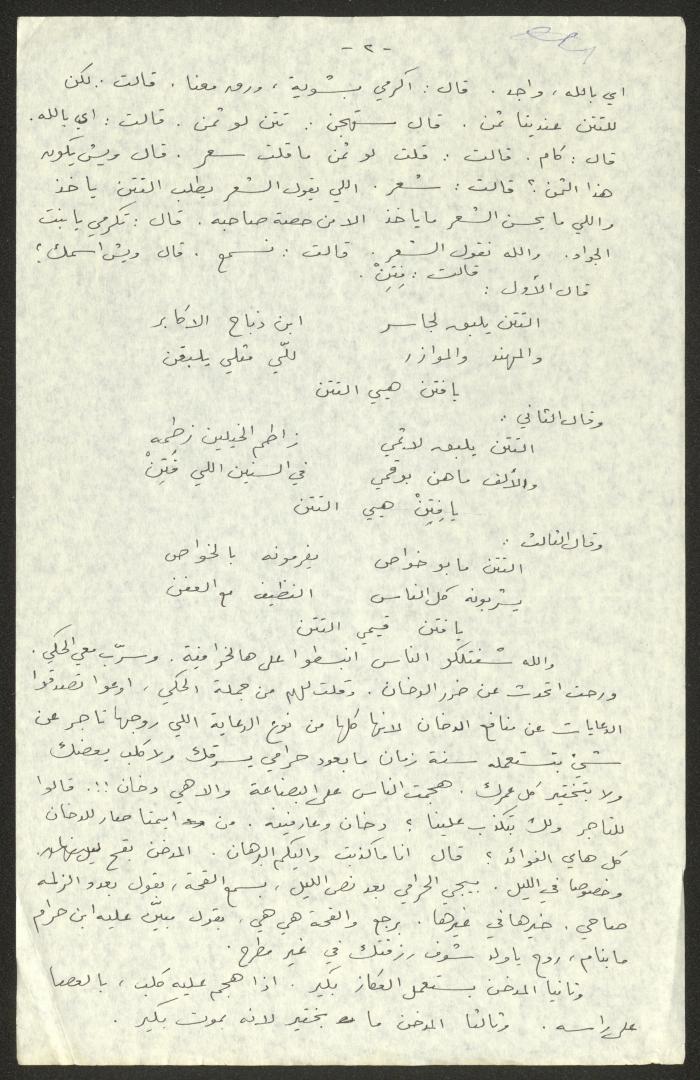 - ٢ -
اي بالله، واجد. قال: اكرمي بشوية، ورق معنا. قالت: لكن
للتتن عندينا ثمن. قال ستهجن: تتن لو ثمن. قالت: اي بالله.
قال: كام. قالت: قلت لو ثمن ما قلت سعر. قال ويش يكون
هذا الثمن؟ قالت: شعر. اللي يقول الشعر يطلب التتن ياخذ
واللي ما يحسن الشعر ما ياخذ الا من حصة صاحبه. قال: تكرمي يا بنت
الجواد. والله نقول الشعر. قالت: نسمع. قال ويش اسمك؟
قالت: فِتِنْ.
قال الأول:
التتن يلبق لجاسر ابن ذباح الاكابر
والمهند والموازر للّي مثلي يلبقن
يا فتن هيي التتن
وقال الثاني:
التتن يلبق لا تمي زاطم الخيلين زطمه
والألف ماهن بوقمي في السنين اللي فَتِنْ
يا فِتِنْ هيي التتن
وقال الثالث:
التتن مابو خواص يفرمونه بالخواص
يشربونه كل الناس النظيف مع العفن
يا فتن قيمي التتن
والله شفتلكو الناس انبسطوا على هالخرافية. وسرّب معي الحكي.
ورحت اتحدث عن ضرر الدخان. وقلت لهم من جملة الحكي، اوعوا تصدقوا
الدعايات عن منافع الدخان لانها كلها من نوع الدعاية اللي روجها تاجر عن
شيْ بتستعمله سنة زمان ما بعود حرامي يسرقك ولا كلب يعضك
ولا بتختير كل عمرك. هجمت الناس على البضاعة والا هي دخان!!. قالوا
للتاجر ولك بتكذب علينا؟ دخان وعارفينه. من ايمتا صار للدخان
كل هاي الفوائد؟ قال انا ما كذبت واليكم البرهان. المدخن بقح ليل نهار
وخصوصا في الليل. بيجي الحرامي بعد نص الليل، بسمع القحة، بقول بعدو الزلمه
صاحي. خيرها في غيرها. برجع والقحة هي هي، بقول مبيّن عليه ابن حرام
ما بنام، روح يا ولد شوف رزقتك في غير مطرح.
وثانيا المدخن بستعمل العكاز بكير. اذا هجم عليه كلب، بالعصا
على راسه. وثالثا المدخن ما بختير لانه بموت بكير.